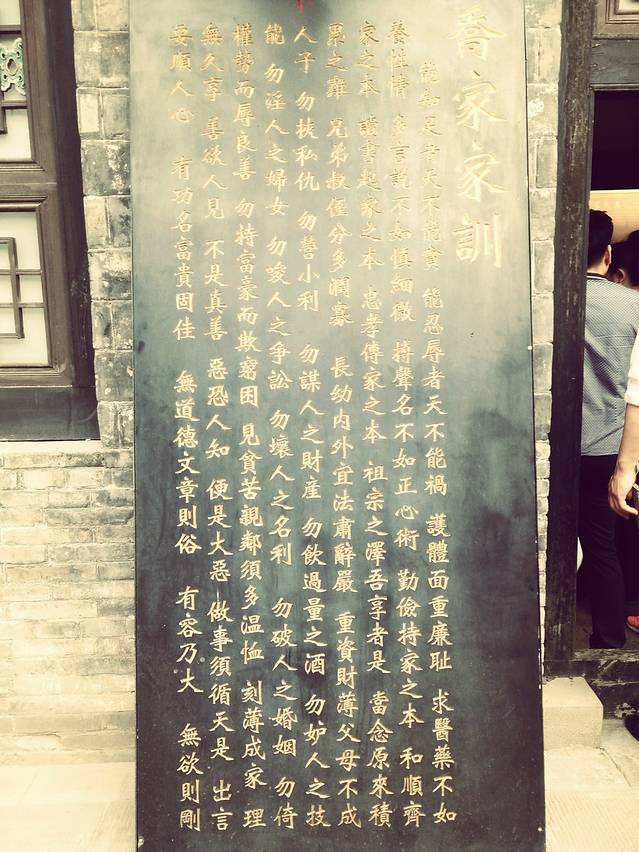 喬家家訓
能知足者天不能貧 能忍辱者天不能禍 護體面重廉耻 求醫藥不如
養性情 多言說不如慎細微 搏聲名不如正心術 勤儉持家之本 和順齊
家之本 讀書起家之本 忠孝傳家之本 祖宗之澤吾享者是 當念原來積
累之難 兄弟叔侄分多潤寡 長幼内外宜法肅辭嚴 重資財薄父母不成
人子 勿挾私仇 勿營小利 勿謀人之財産 勿飲過量之酒 勿妒人之技
能 勿淫人之婦女 勿唆人之争訟 勿壞人之名利 勿破人之婚姻 勿倚
權勢而辱良善 勿持富豪而欺窮困 見貧苦親鄰須多温恤 刻薄成家 理
無久享 善欲人見 不是真善 惡恐人知 便是大惡 做事須循天是 出言
要順人心 有功名富貴固佳 無道德文章則俗 有容乃大 無欲則剛